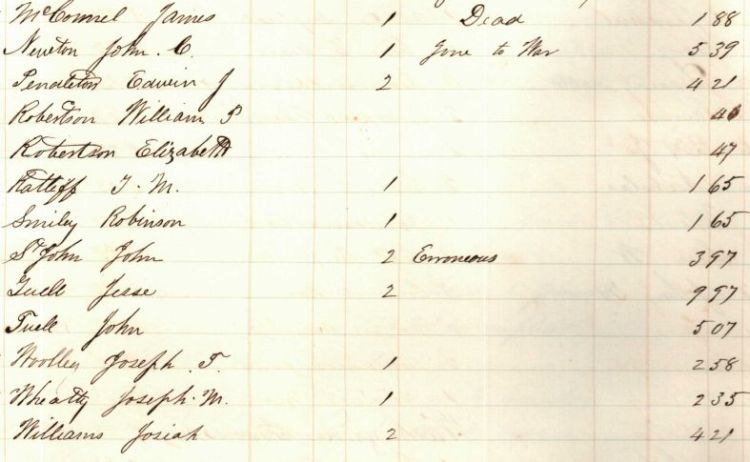 McConnel James 1 Dead 1 88
Newton John. C. 1 Gone to War 5 39
Pendleton Edwin J 2 4 21
Robertson William P
Robertson Elizabeth 47
Ratliff T. M. 1 1 65
Smiley Robinson 1 1 65
St John John 2 Erroneous 3 97
Tuell Jesse 2 9 97
Tuell John 5 07
Woolley Joseph. T. 1 2 58
Wheatly Joseph. M. 1 2 35
Williams Josiah 2 4 21